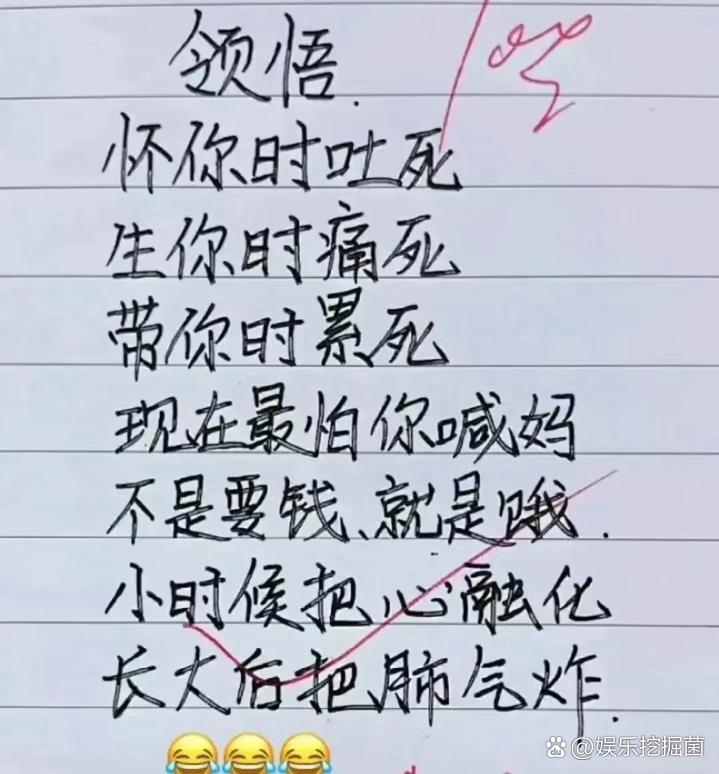 领悟.
怀你时吐死
生你时痛死
带你时累死
现在最怕你喊妈
不是要钱、就是饿.
小时候把心融化
长大后把肺气炸.
娱乐挖掘菌